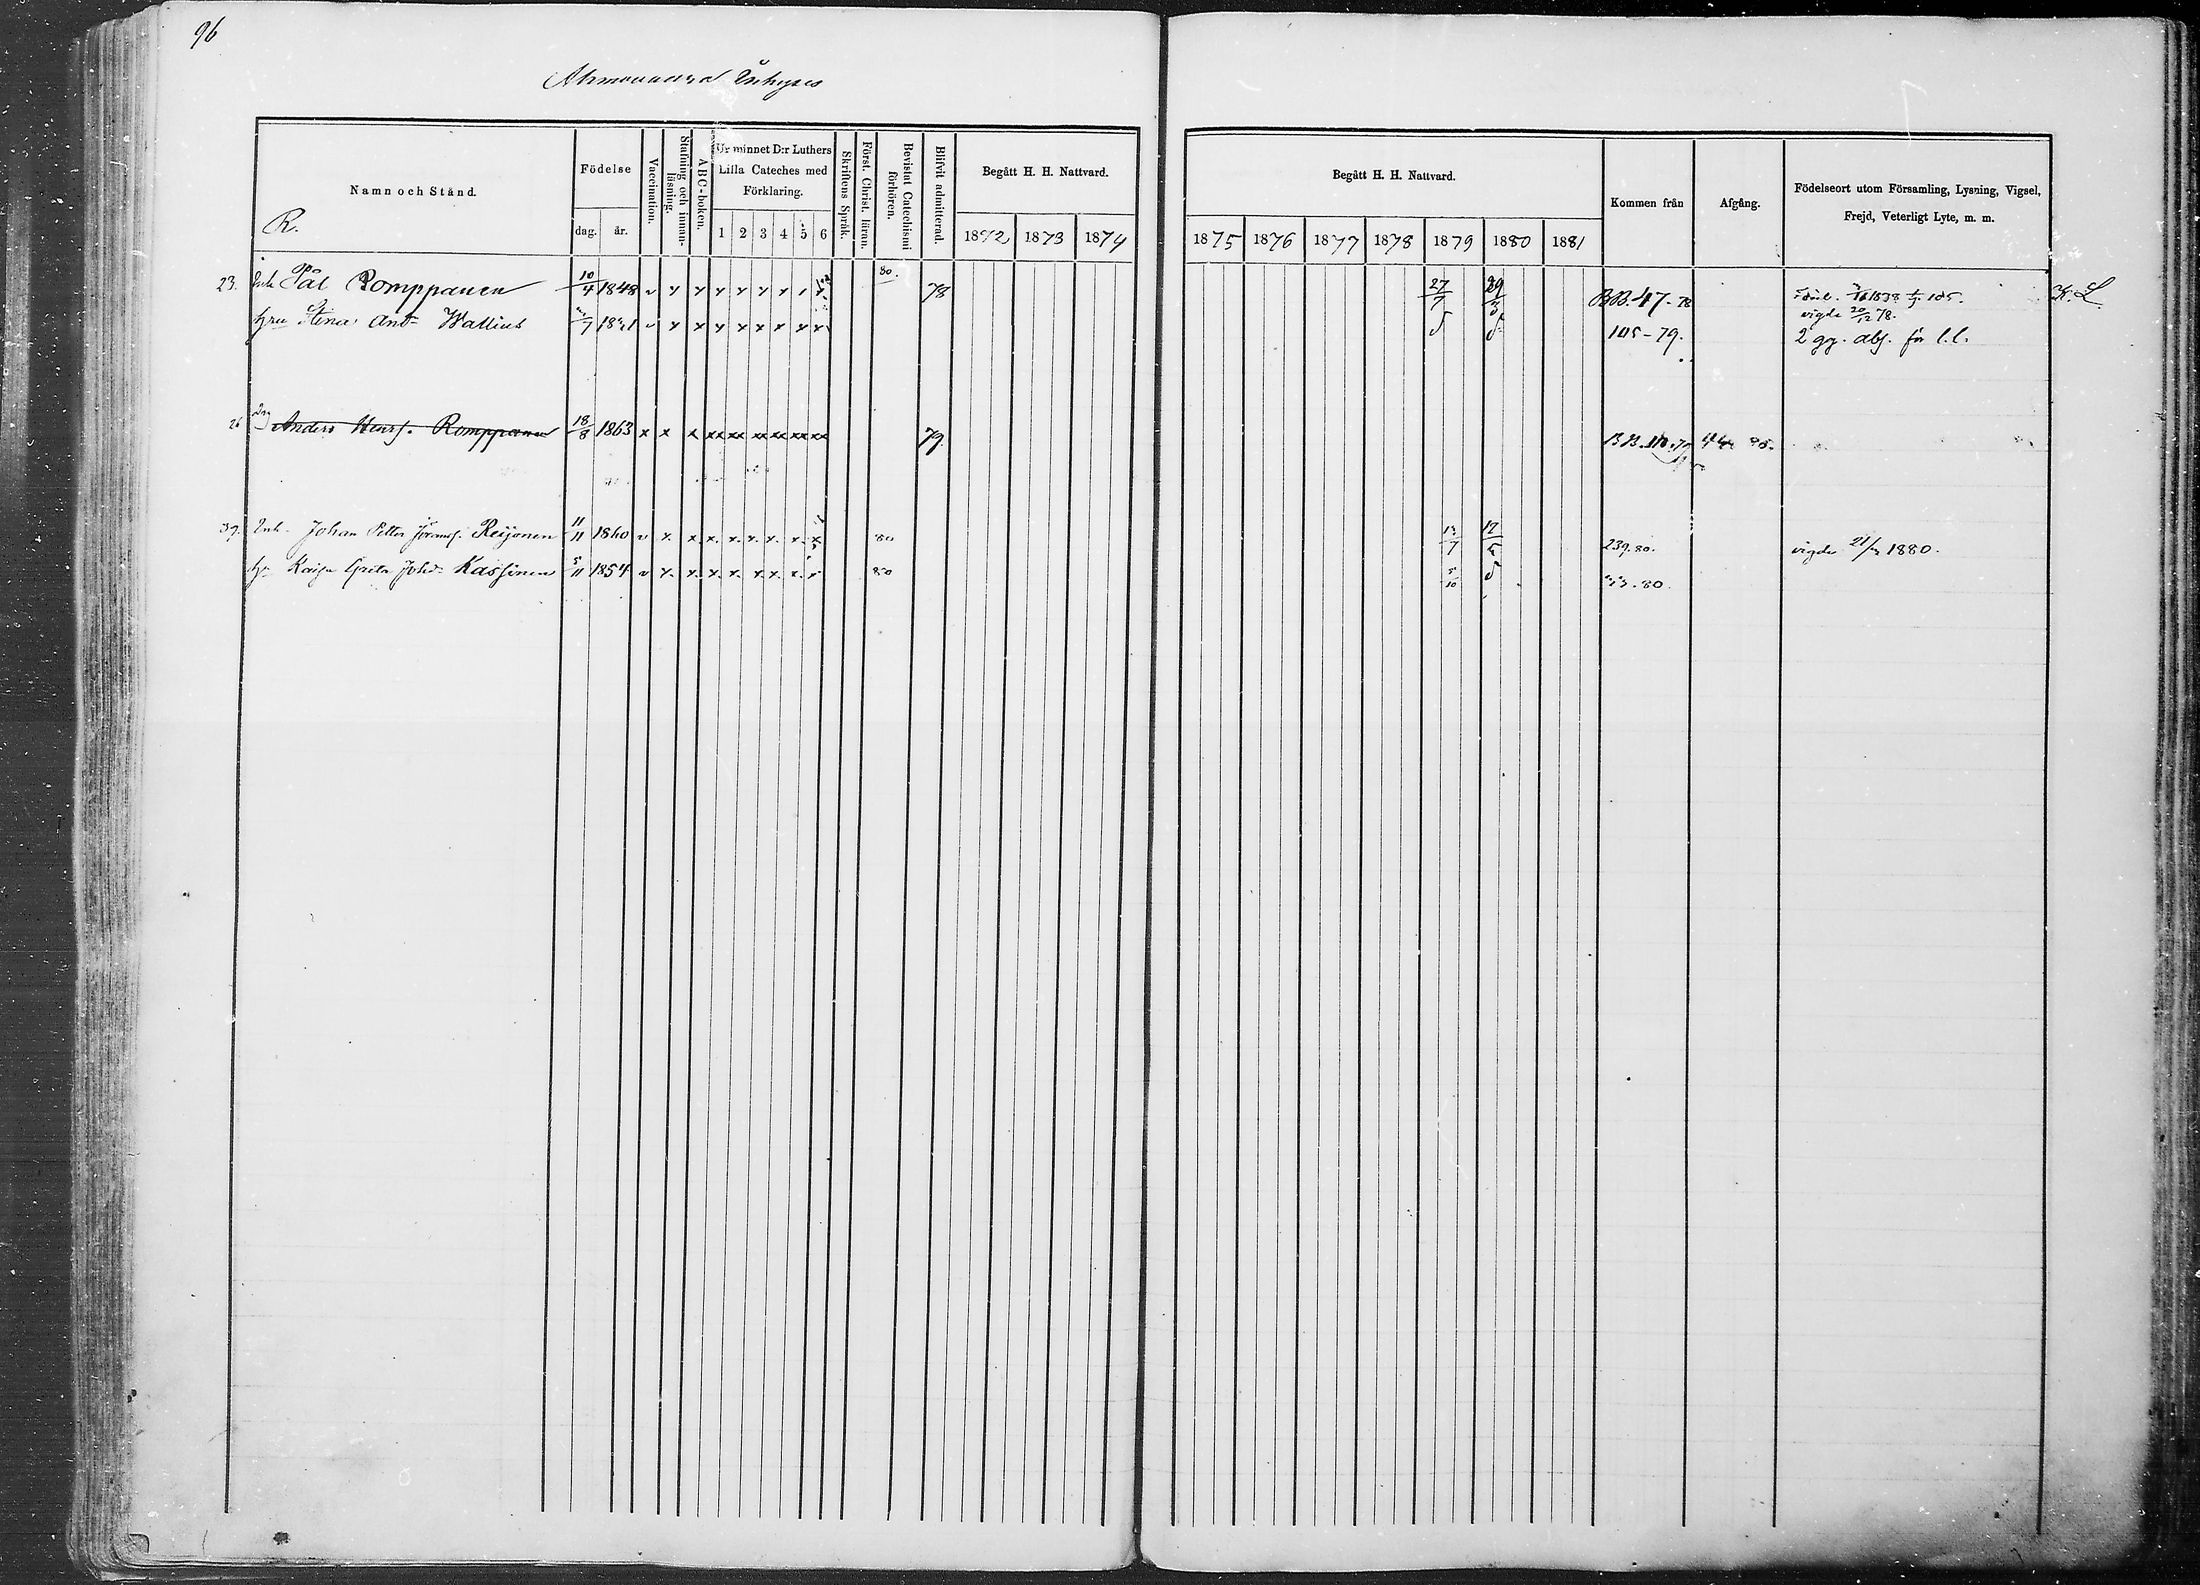 96
Ahmovaara Inhyses
Namn och Stånd.
R.
Födelse
dag. år.
Vaccination.
Stafning och innanläsning.
ABC-boken.
Ur minnet D:r Luthers
Lilla Cateches med
Förklaring.
1 2 3 4 5 6
Skriftens Språk.
Först. Christ. läran.
Bevistat Catechismi förhören.
Blifvit admitterad.
Begått H. H. Nattvard.
1872 1873 1874
Begått H. H. Nattvard.
1875 1876 1877 1878 1879 1880 1881
Kommen från
Afgång.
Födelseort utom Församling, Lysning, Vigsel,
Frejd, Veterligt Lyte, m. m.
23. Inh Pål Romppanen 10/4 1848 v x x x x x x x x 80. 78 27/7 29/3 BB. 47-78
vigde 20/12 78.
hru Stina And= Wallius v x x x x x x x x 105-79. 2 gg. abs. för l.l.
26 Anders Henrs. Romppanen 18/8 1863 x x x xx xx xx xx xx xx 79. BB. 110.79
39. Inh. Johan Petter Göranss. Reijonen 11/11 1860 v x x x x x x x x 80 239.80. vigde 1880.
hu Kaisa Greta Johd= Kassinen 5/11 1854 v x x x x x x x 80 5/10 33.80.